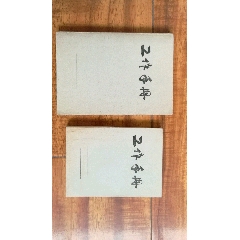 工作手册
工作手册